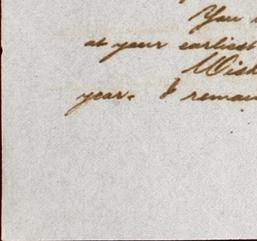 You
at your earliest
Wish
year. I remain